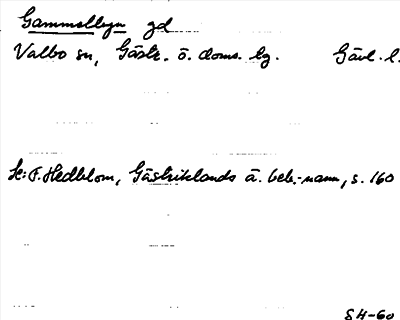 Gammelbyn gd
Valbo sn, Gästr. ö. doms. lg. Gävl. l.
Se: F. Hedblom, Gästriklands ä. beb.-namn, s. 160
SH-60